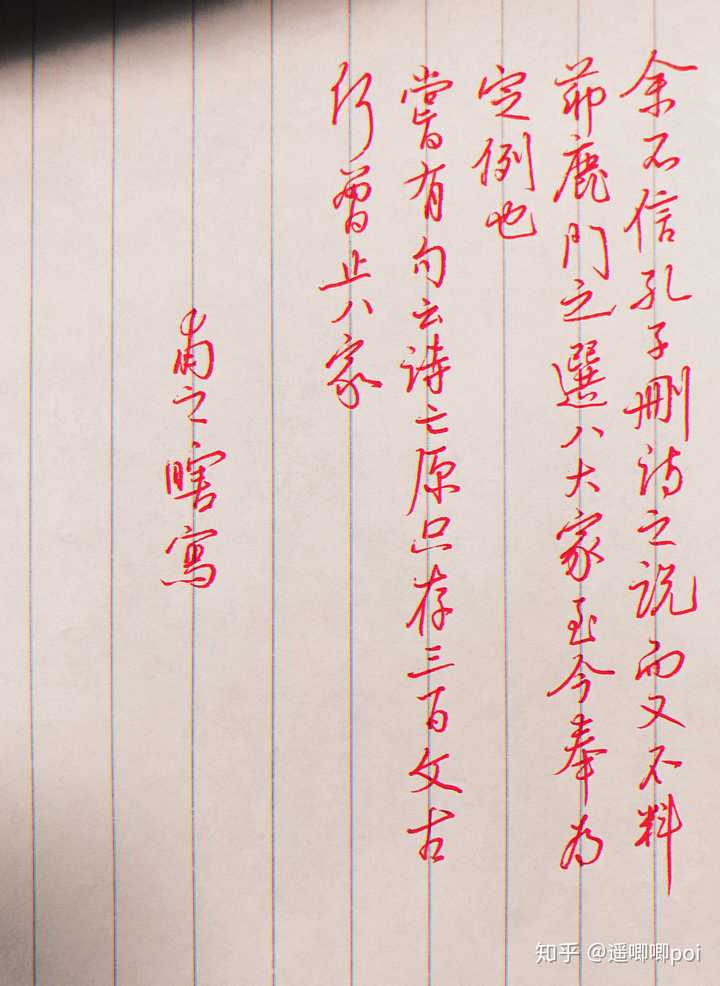 余不信孔子删诗之说而又不料
茆鹿門之選八大家至今奉为
定例也
嘗有句云诗亡原只存三百文古
何曾止八家
甫之瞎寫
知乎 @遥唧唧poi